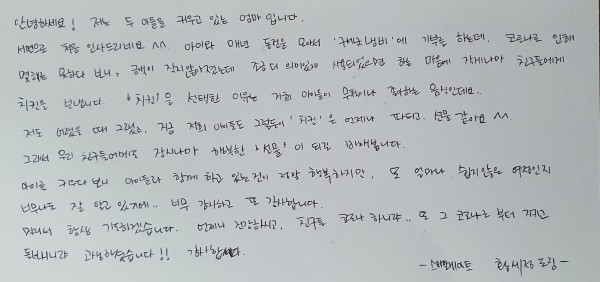 안녕하세요! 저는 두 아들을 키우고 있는 엄마 입니다.
서면으로 처음 인사드리네요 ^^. 아이와 매년 동전을 모아서 '구세군 냄비'에 기부를 하는데. 코로나로 인해
몇해를 못하다 보니, 금액이 작지않아졌는데 좀 더 의미있게 사용되었으면 하는 마음에 작게나마 친구들에게
치킨을 보냅니다. '치킨'을 선택한 이유는 저희 아이들이 무척이나 좋아하는 음식인데요..
저도 어렸을 때 그랬고, 지금 저희 아이들도 그렇듯이 '치킨'은 언제나 파티고. 선물 같아요 ^^.
그래서 우리 친구들에게도 잠시나마 행복한 '선물'이 되길 바래봅니다.
아이를 키우다 보니 아이들과 함께 하고 있는 것이 정말 행복하지만, 또 얼마나 쉽지 않은 여정인지
너무나도 잘 알고 있기에.. 너무 감사하고 또 감사합니다.
멀리서 항상 기도하겠습니다. 언제나 건강하시고, 친구들 코로나 하니라.. 또 그 코로나로 부터 지키고
돌봐내니라 고생하셨습니다!! 감사합니다.
홍세정 드림-